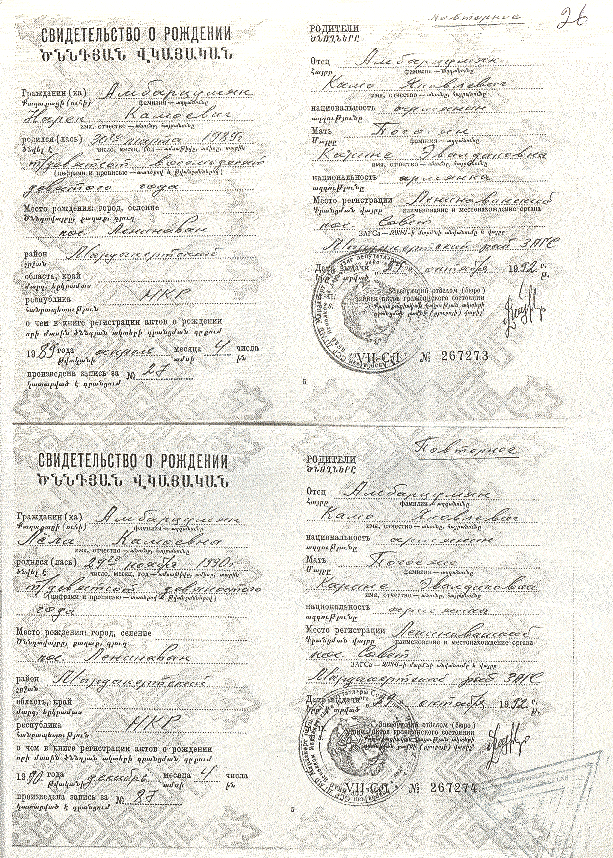 Повторное
26
СВИДЕТЕЛЬСТВО О РОЖДЕНИИ
ԾՆՆԴՅԱՆ ՎԿԱՅԱԿԱՆ
Гражданин (ка) Амбарцумян
Քաղաքացի (ուհի) фамилия — ազգանունը
Нарек Камоевич
имя, отчество — անունը, հայրանունը
родился (лась) 1989г.
Ծնվել է число, месяц, год — ամսաթիվը, ամիսը, տարին
тысяча девятьсот восемьдесят
(цифрами и прописью — թվերով և տառերով)
девятого года
Место рождения: город, селение
Ծննդավայրը, քաղաք, գյուղ
пос. Ленинаван
район Мардакертский
շրջան
область, край
մարզ, երկրամաս
республика НКР
հանրապետություն
о чем в книге регистрации актов о рождении
որի մասին ծննդյան ակտերի գրանցման գրքում
1989 года апреля месяца 4 числа
թվականի ամսի ին
произведена запись за № 27
կատարված է գրանցում
РОДИТЕЛИ
ԾՆՈՂՆԵՐԸ
Отец Амбарцумян
Հայրը фамилия — ազգանունը
Камо Яковлевич
имя, отчество — անունը, հայրանունը
национальность армянин
ազգությունը
Мать Погосян
Մայրը фамилия — ազգանունը
Карине
имя, отчество — անունը, հայրանունը
национальность армянка
ազգությունը
Место регистрации Ленинаванский
Գրանցման վայրը наименование и местонахождение органа
пос. Совет
ЗАГСа
Мардакертский ЗАГС
Дата выдачи октября 1992 г.
Заведующий отделом (бюро)
записи актов гражданского состояния
VII-СЛ № 267273
5
СВИДЕТЕЛЬСТВО О РОЖДЕНИИ
ԾՆՆԴՅԱՆ ՎԿԱՅԱԿԱՆ
Гражданин (ка) Амбарцумян
Քաղաքացի (ուհի) фамилия — ազգանունը
Камоевна
имя, отчество — անունը, հայրանունը
родился (лась) 29 ноября 1990г.
Ծնվել է число, месяц, год — ամսաթիվը, ամիսը, տարին
тысяча девятьсот девяностого
(цифрами и прописью — թվերով և տառերով)
года
Место рождения: город, селение
Ծննդավայրը, քաղաք, գյուղ
пос. Ленинаван
район Мардакертский
շրջան
область, край
մարզ, երկրամաս
республика НКР
հանրապետություն
о чем в книге регистрации актов о рождении
որի մասին ծննդյան ակտերի գրանցման գրքում
1990 года декабря месяца 4 числа
թվականի ամսի ին
произведена запись за № 87
կատարված է գրանցում
Повторное
РОДИТЕЛИ
ԾՆՈՂՆԵՐԸ
Отец Амбарцумян
Հայրը фамилия — ազգանունը
Камо Яковлевич
имя, отчество — անունը, հայրանունը
национальность армянин
ազգությունը
Мать Погосян
Մայրը фамилия — ազգանունը
Карине
имя, отчество — անունը, հայրանունը
национальность армянка
ազգությունը
Место регистрации Ленинаванский
Գրանցման վայրը наименование и местонахождение органа
пос. Совет
ЗАГСа
Мардакертский ЗАГС
Дата выдачи 29 октября 1992 г.
Заведующий отделом (бюро)
записи актов гражданского состояния
VII-СЛ № 267274
5